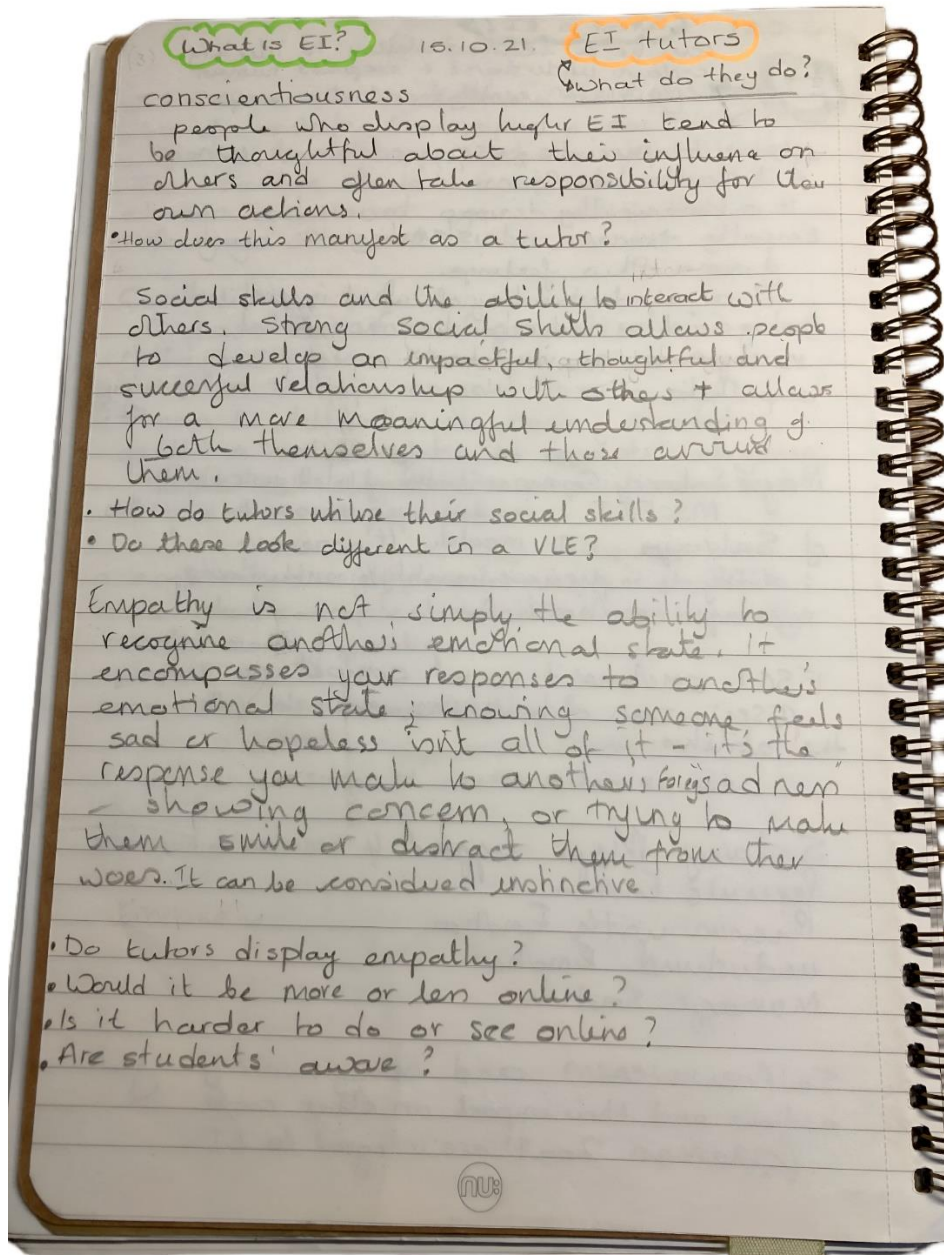 What is EI? 15.10.21. EI tutors
↳ what do they do?
conscientiousness
people who display higher EI tend to
be thoughtful about their influence on
others and often take responsibility for their
own actions.
•How does this manifest as a tutor?
Social skills and the ability to interact with
others. Strong social skills allows people
to develop an impactful, thoughtful and
successful relationship with others + allows
for a more meaningful understanding of
both themselves and those
them.
• How do tutors utilise their social skills?
• Do these look different in a VLE?
Empathy is not simply the ability to
recognise another's emotional state. It
encompasses your responses to another's
emotional state; knowing someone feels
sad or hopeless isn't all of it - it's the
response you make to another's sadness
- showing concern, or trying to make
them smile or distract them from their
woes. It can be considered instinctive.
•Do tutors display empathy?
•Would it be more or less online?
•Is it harder to do or see online?
•Are students' aware?
nu: